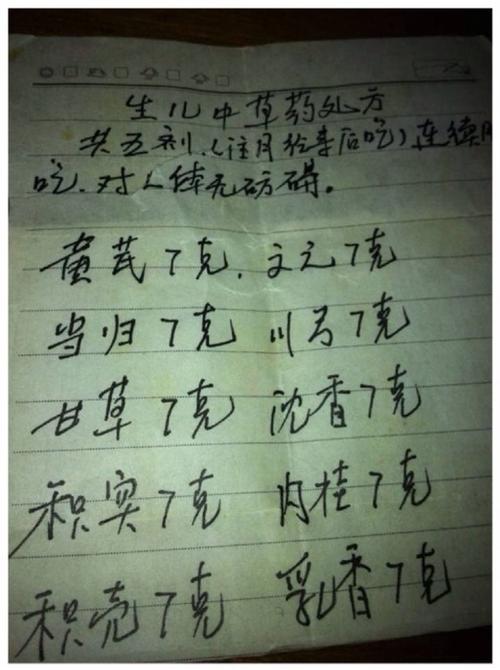 生儿中草药处方
共五剂.(注月经净后吃)连续
吃.对人体无妨碍。
黄芪7克.文元7克
当归7克 川弓7克
甘草7克 沈香7克
积实7克 肉桂7克
积壳7克 乳香7克